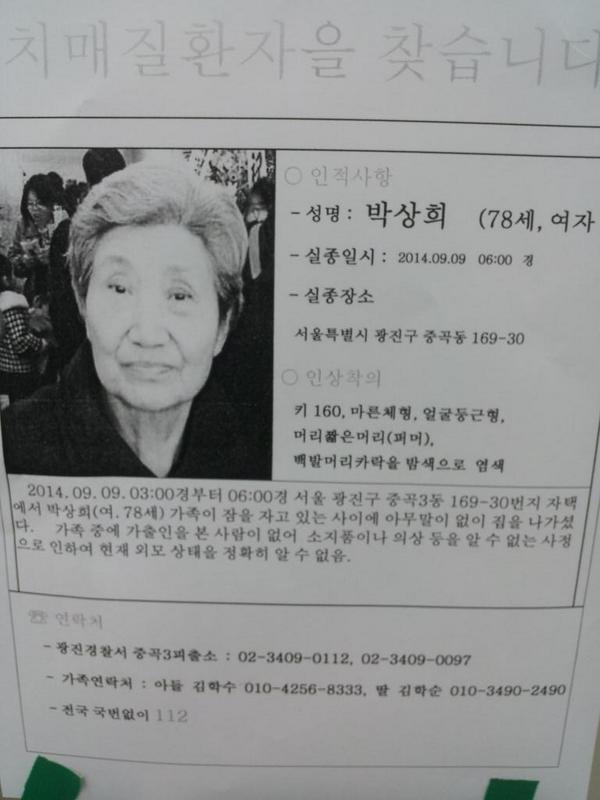 치매질환자을 찾습니다
○ 인적사항
- 성명 : 박상희 (78세, 여자
- 실종일시 : 2014.09.09 06:00 경
- 실종장소
서울특별시 광진구 중곡동 169-30
○ 인상착의
키 160, 마른체형, 얼굴둥근형,
머리짧은머리(퍼머),
백발머리카락을 밤색으로 염색
2014. 09. 09. 03:00경부터 06:00경 서울 광진구 중곡3동 169-30번지 자택
에서 박상희(여. 78세) 가족이 잠을 자고 있는 사이에 아무말이 없이 집을 나가셨
다. 가족 중에 가출인을 본 사람이 없어 소지품이나 의상 등을 알 수 없는 사정
으로 인하여 현재 외모 상태을 정확히 알 수 없음.
☏ 연락처
- 광진경찰서 중곡3파출소 : 02-3409-0112, 02-3409-0097
- 가족연락처 : 아들 김학수 010-4256-8333, 딸 김학순 010-3490-2490
- 전국 국번없이 112